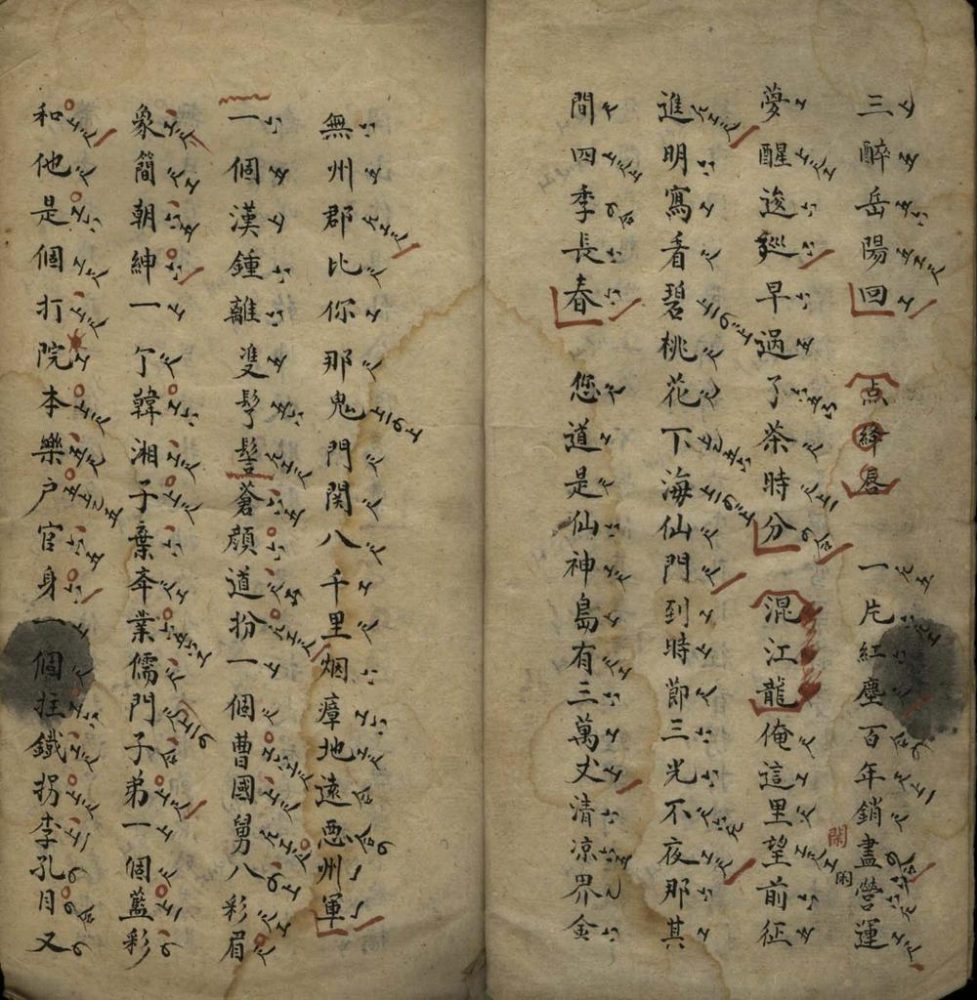 三醉岳陽回 点絳唇 一片紅塵百年銷盡營運
夢醒逡巡早過了茶時分 混江龍 俺這里望前征
進明寫看碧桃花下海仙門到時節三光不夜那其
間四季長春 您道是仙神島有三萬丈清凉界金
無州郡比你那鬼門関八千里烟瘴地遠惡州軍
一個漢鍾離雙髽髻蒼顔道扮一個曹國舅八彩眉
象簡朝紳一丁韓湘子棄本業儒門子弟一個藍彩
和他是個打院本樂户官身一個拄鐵拐李孔目又
閑
閑